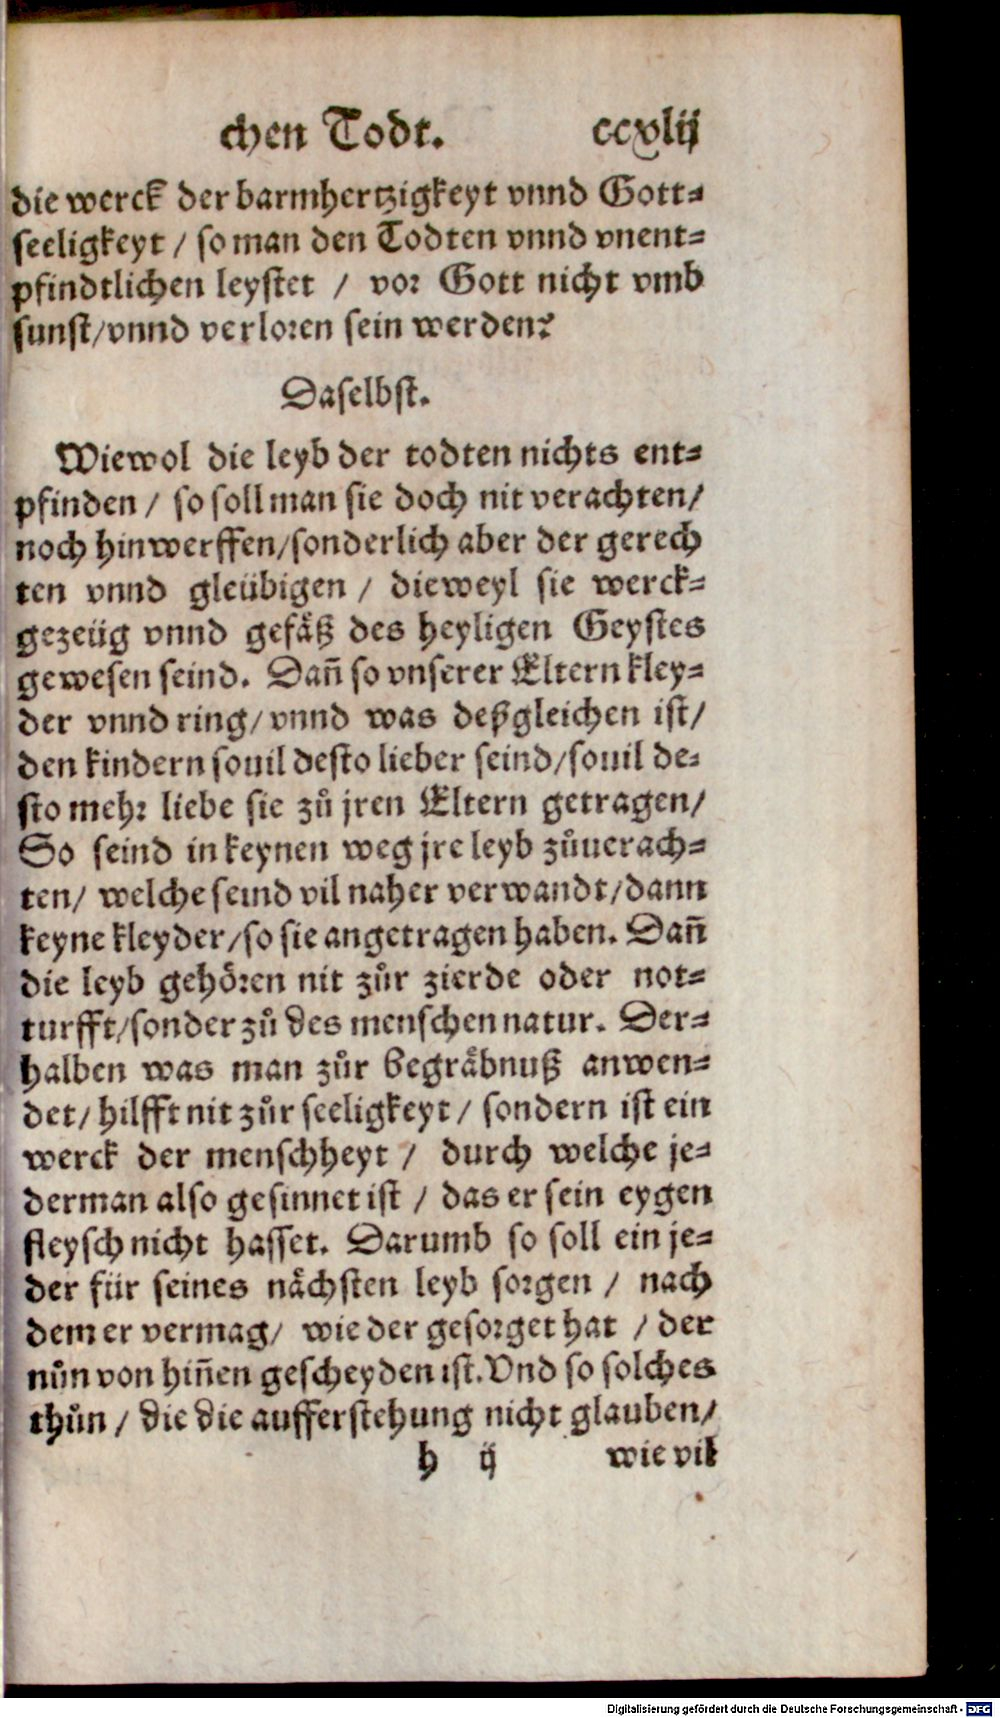 chen Todt. ccxlij
die werck der barmhertzigkeyt vnnd Gott⸗
seeligkeyt / so man den Todten vnnd vnent⸗
pfindtlichen leystet / vor Gott nicht vmb
sunst/vnnd verloren sein werden?
Daselbst.
Wiewol die leyb der todten nichts ent⸗
pfinden / so soll man sie doch nit verachten/
noch hinwerffen/sonderlich aber der gerech
ten vnnd gleübigen / dieweyl sie werck⸗
gezeüg vnnd gefäß des heyligen Geystes
gewesen seind. Dañ so vnserer Eltern kley⸗
der vnnd ring/vnnd was deßgleichen ist/
den kindern souil desto lieber seind/souil de⸗
sto mehr liebe sie zů jren Eltern getragen/
So seind in keynen weg jre leyb zůuerach⸗
ten/ welche seind vil naher verwandt/dann
keyne kleyder/so sie angetragen haben. Dañ
die leyb gehören nit zůr zierde oder not⸗
turfft/sonder zů des menschen natur. Der⸗
halben was man zůr begräbnuß anwen⸗
det/ hilfft nit zůr seeligkeyt / sondern ist ein
werck der menschheyt / durch welche je⸗
derman also gesinnet ist / das er sein eygen
fleysch nicht hasset. Darumb so soll ein je⸗
der für seines nächsten leyb sorgen / nach
dem er vermag/ wie der gesorget hat / der
nůn von hiñen gescheyden ist. Vnd so solches
thůn / die die aufferstehung nicht glauben/
h ij wie vil
Digitalisierung gefördert durch die Deutsche Forschungsgemeinschaft - DFG